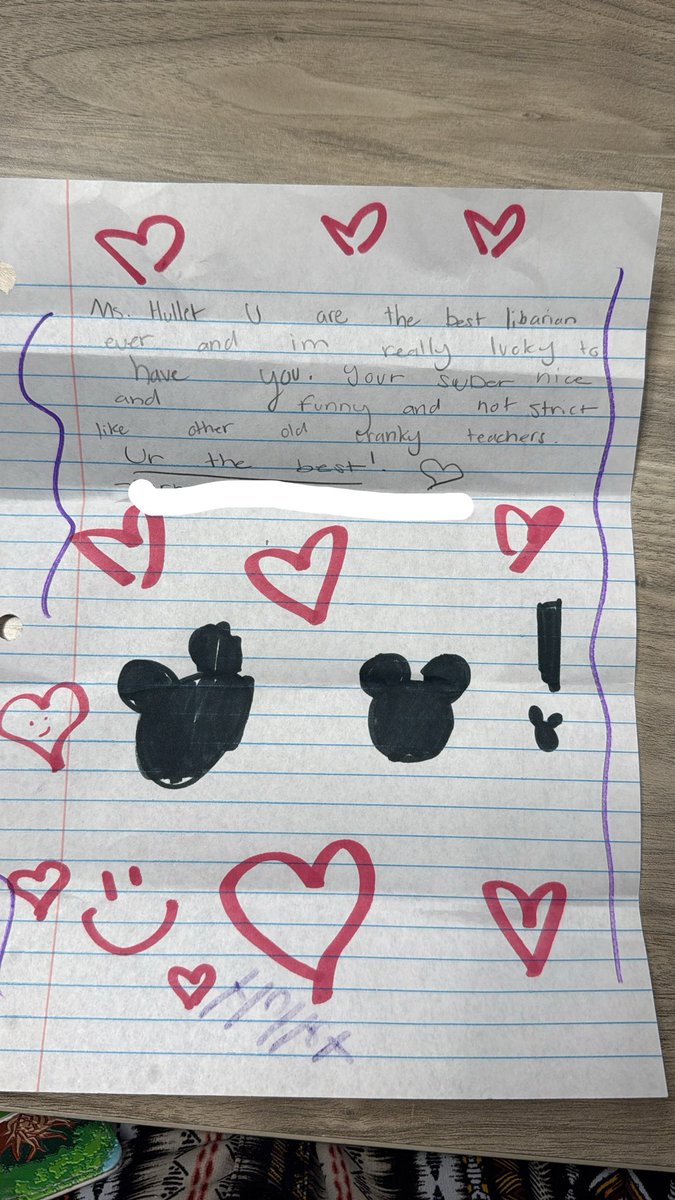 Ms. Hullet U are the best libarian
ever and im really lucky to
have you. Your super nice
and funny and not strict
like other old cranky teachers.
Ur the best!